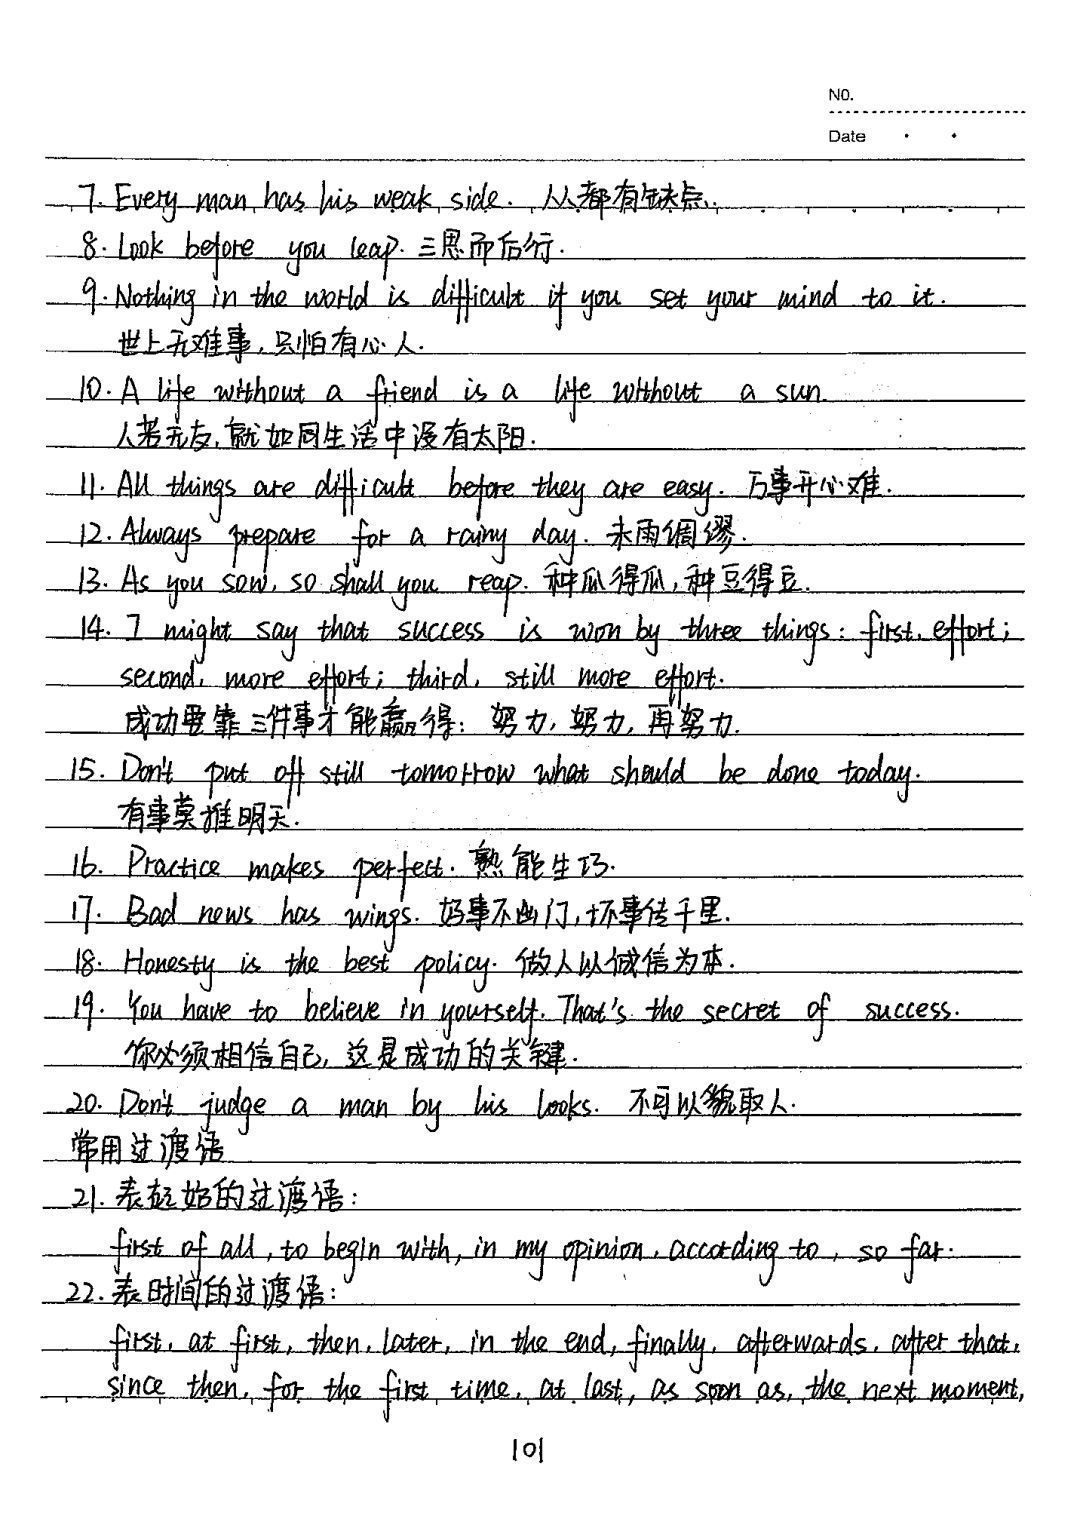 NO.
Date
7. Every man has his weak side. 人人都有缺点.
8. Look before you leap. 三思而后行.
9. Nothing in the world is difficult if you set your mind to it.
世上无难事,只怕有心人.
10. A life without a friend is a life without a sun.
人若无友,就如同生活中没有太阳.
11. All things are difficult before they are easy. 万事开心难.
12. Always prepare for a rainy day. 未雨倜缪.
13. As you sow, so shall you reap. 种瓜得瓜,种豆得豆.
14. I might say that success is won by three things: first, effort;
second, more effort; third, still more effort.
成功要靠三件事才能赢得: 努力,努力,再努力.
15. Don't put off still tomorrow what should be done today.
有事莫推明天.
16. Practice makes perfect. 熟能生巧.
17. Bad news has wings. 好事不出门,坏事传千里.
18. Honesty is the best policy. 做人以诚信为本.
19. You have to believe in yourself. That's the secret of success.
你必须相信自己,这是成功的关键.
20. Don't judge a man by his looks. 不可以貌取人.
常用过渡语
21. 表起始的过渡语:
first of all, to begin with, in my opinion, according to, so far.
22. 表时间的过渡语:
first, at first, then, later, in the end, finally, afterwards, after that,
since then, for the first time, at last, as soon as, the next moment,
101